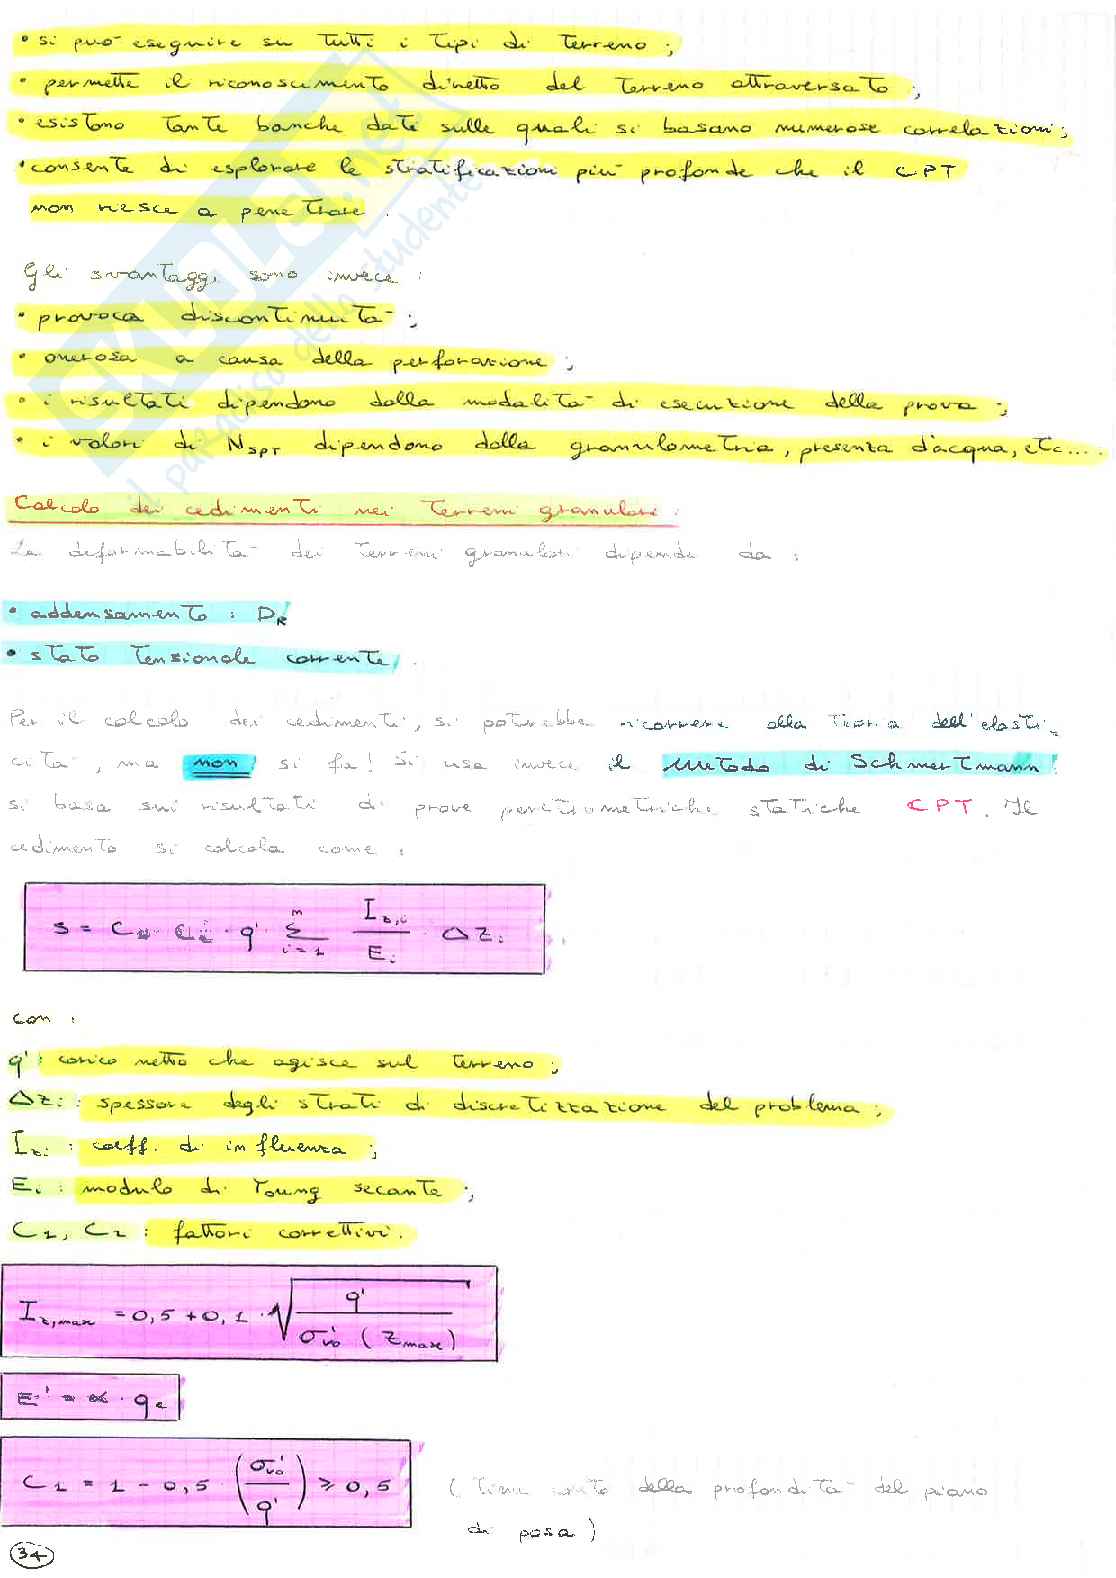 • si può eseguire su tutti i tipi di terreno ;
• permette il riconoscimento diretto del terreno attraversato ;
• esistono tante banche dati sulle quali si basano numerose correlazioni ;
• consente di esplorare le stratificazioni più profonde che il CPT
non riesce a penetrare .
Gli svantaggi sono invece :
• provoca discontinuità ;
• onerosa a causa della perforazione ;
• i risultati dipendono dalla modalità di esecuzione della prova ;
• i valori di NSPT dipendono dalla granulometria, presenza d'acqua, etc....
Calcolo dei cedimenti nei terreni granulari :
La deformabilità dei terreni granulari dipende da :
• addensamento : DR
• stato tensionale corrente .
Per il calcolo dei cedimenti, si potrebbe ricorrere alla Teoria dell'elasti-
cità, ma non si fa! Si usa invece il metodo di Schmertmann!
si basa sui risultati di prove penetrometriche statiche CPT. Il
cedimento si calcola come :
s = C1 · C2 · q' Σ i=1 n Iz,i / Ei · Δzi
con :
q' : carico netto che agisce sul terreno ;
Δzi : spessore degli strati di discretizzazione del problema ;
Izi : coeff. di influenza ;
Ei : modulo di Young secante ;
C1, C2 : fattori correttivi .
Iz,max = 0,5 + 0,1 · √ q' / σ'v0 (zmax)
E' = α · qc
C1 = 1 - 0,5 · (σ'v0 / q') ≥ 0,5 (tiene conto della profondità del piano
di posa)
34
SKUOLA.net
il paradiso dello studente